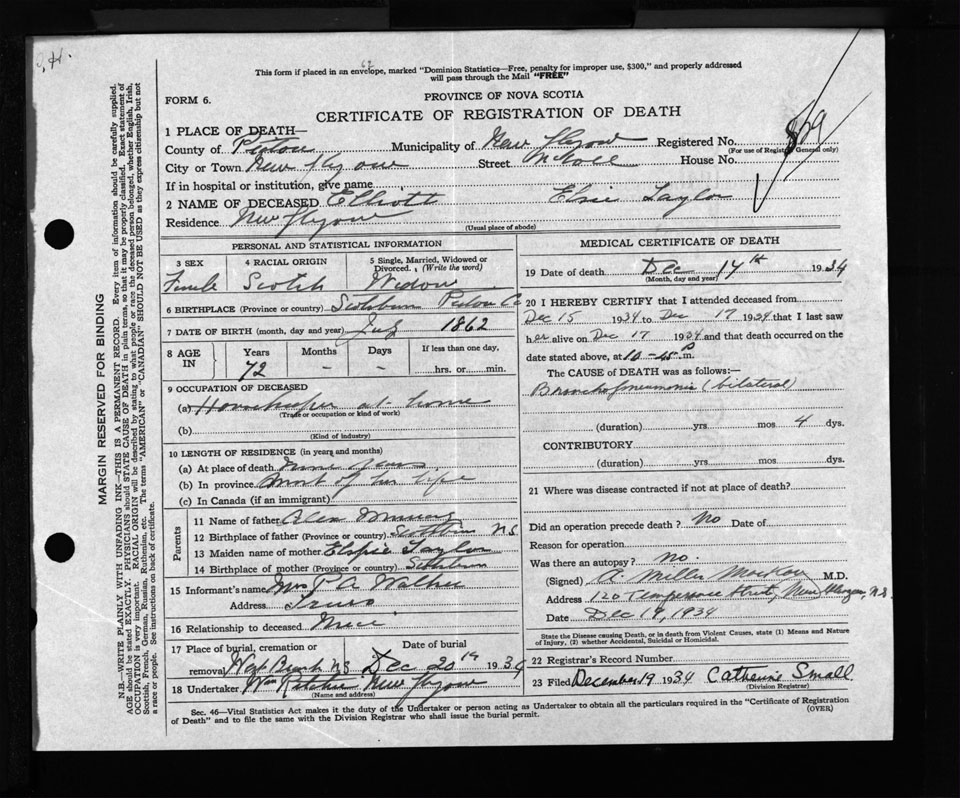 This form if placed in an envelope, marked "Dominion Statistics—Free, penalty for improper use, $300," and properly addressed
will pass through the Mail "FREE"
FORM 6.
PROVINCE OF NOVA SCOTIA
CERTIFICATE OF REGISTRATION OF DEATH
1 PLACE OF DEATH—
County of Pictou Municipality of New Glasgow Registered No. 829
(For use of Registrar General only)
City or Town New Glasgow Street House No.
If in hospital or institution, give name
2 NAME OF DECEASED Elliott Elsie Taylor
Residence New Glasgow
(Usual place of abode)
PERSONAL AND STATISTICAL INFORMATION
3 SEX 4 RACIAL ORIGIN 5 Single, Married, Widowed or Divorced. (Write the word)
Female Scotch Widow
6 BIRTHPLACE (Province or country) Scotsburn Pictou Co
7 DATE OF BIRTH (month, day and year) 1862
8 AGE IN Years Months Days If less than one day,
72 - - hrs. or min.
9 OCCUPATION OF DECEASED
(a) Housekeeper at home
(Trade or occupation or kind of work)
(b)
(Kind of industry)
10 LENGTH OF RESIDENCE (in years and months)
(a) At place of death years
(b) In province Most of her life
(c) In Canada (if an immigrant)
Parents
11 Name of father Alex Murray
12 Birthplace of father (Province or country) Scotsburn NS
13 Maiden name of mother Elspie Taylor
14 Birthplace of mother (Province or country) Scotsburn
15 Informant's name Mrs
Address Truro
16 Relationship to deceased Niece
17 Place of burial, cremation or removal West Branch NS Date of burial Dec 20th 1934
18 Undertaker Wm Ritchie New Glasgow
(Name and address)
MEDICAL CERTIFICATE OF DEATH
19 Date of death Dec 17th 1934
(Month, day and year)
20 I HEREBY CERTIFY that I attended deceased from
Dec 15 1934 to Dec 17 1934 that I last saw
her alive on Dec 17 1934 and that death occurred on the
date stated above, at 10-45 P.m.
The CAUSE of DEATH was as follows:—
Bronchopneumonia (bilateral)
(duration) yrs mos 4 dys.
CONTRIBUTORY
(duration) yrs mos dys.
21 Where was disease contracted if not at place of death?
Did an operation precede death? No Date of
Reason for operation
Was there an autopsy? no.
(Signed) A. Miller M.D.
Address 120 Temperance Street, New Glasgow, N.S.
Date Dec 19, 1934
State the Disease causing Death, or in death from Violent Causes, state (1) Means and Nature
of Injury, (2) whether Accidental, Suicidal or Homicidal.
22 Registrar's Record Number
23 Filed December 19 1934 Catherine Small
(Division Registrar)
Sec. 46—Vital Statistics Act makes it the duty of the Undertaker or person acting as Undertaker to obtain all the particulars required in the "Certificate of Registration
of Death" and to file the same with the Division Registrar who shall issue the burial permit.
(OVER)
MARGIN RESERVED FOR BINDING
N.B.—WRITE PLAINLY WITH UNFADING INK—THIS IS A PERMANENT RECORD. Every item of information should be carefully supplied.
AGE should be stated EXACTLY. PHYSICIANS should STATE CAUSE OF DEATH in plain terms, so that it may be properly classified. Exact statement of
OCCUPATION is very important. RACIAL ORIGIN will be described by stating to what people or race the deceased person belonged, whether English, Irish,
Scottish, French, German, Russian, Ruthenian, etc. The terms "AMERICAN" or "CANADIAN" SHOULD NOT BE USED as they express citizenship but not
a race or people. See instructions on back of certificate.